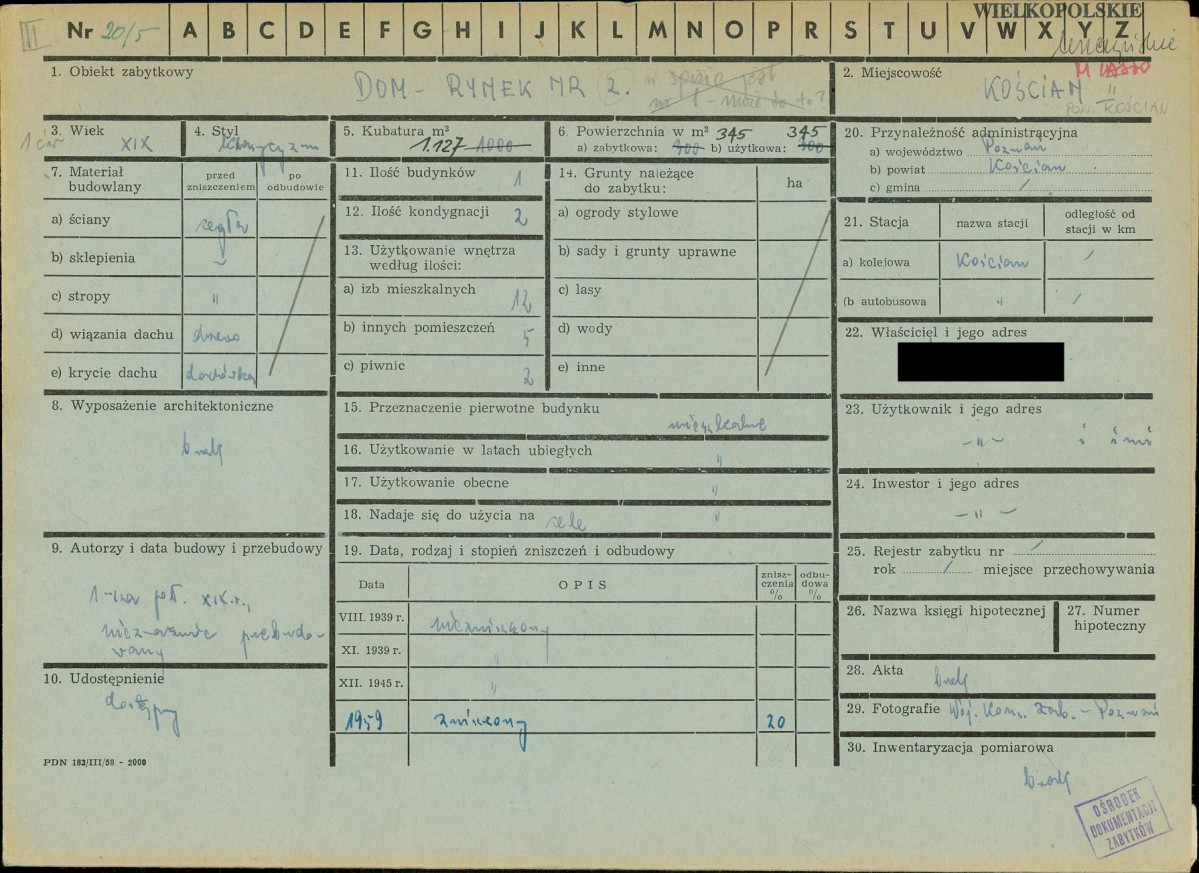 WIELKOPOLSKIE
II Nr 20/5 A B C D E F G H I J K L M N O P R S T U V W X Y Z
leszczyńskie
1. Obiekt zabytkowy
DOM - RYNEK NR 2.
w spisie jest
nr 1 - może to to?
2. Miejscowość
MIASTO
KOŚCIAN
POW. KOŚCIAN
3. Wiek
1 ćw. XIX
4. Styl
klasycyzm
5. Kubatura m³
1.127 1000
6. Powierzchnia w m² 345 345
a) zabytkowa: 300 b) użytkowa: 300
7. Materiał budowlany
przed zniszczeniem
po odbudowie
a) ściany cegła
b) sklepienia ~
c) stropy "
d) wiązania dachu drewno
e) krycie dachu dachówka
8. Wyposażenie architektoniczne
brak
9. Autorzy i data budowy i przebudowy
1-sza poł. XIX w.,
nieznacznie przebudo-
wany
10. Udostępnienie
dostępny
PDN 183/III/58 - 2000
11. Ilość budynków 1
12. Ilość kondygnacji 2
13. Użytkowanie wnętrza
według ilości:
a) izb mieszkalnych 12
b) innych pomieszczeń 5
c) piwnic 2
14. Grunty należące
do zabytku:
ha
a) ogrody stylowe
b) sady i grunty uprawne
c) lasy
d) wody
e) inne
15. Przeznaczenie pierwotne budynku
mieszkalne
16. Użytkowanie w latach ubiegłych "
17. Użytkowanie obecne "
18. Nadaje się do użycia na cele "
19. Data, rodzaj i stopień zniszczeń i odbudowy
Data
OPIS
znisz-
czenia
%
odbu-
dowa
%
VIII. 1939 r. niezniszczony
XI. 1939 r. "
XII. 1945 r. "
1959 zniszczony 20
20. Przynależność administracyjna
a) województwo Poznań
b) powiat Kościan
c) gmina /
21. Stacja
nazwa stacji
odległość od
stacji w km
a) kolejowa Kościan /
(b autobusowa " /
22. Właściciel i jego adres
23. Użytkownik i jego adres
- " - i inni
24. Inwestor i jego adres
- " -
25. Rejestr zabytku nr /
rok / miejsce przechowywania
26. Nazwa księgi hipotecznej
27. Numer
hipoteczny
28. Akta
brak
29. Fotografie Woj. Kons. Zab. - Poznań
30. Inwentaryzacja pomiarowa
brak
OŚRODEK
DOKUMENTACJI
ZABYTKÓW